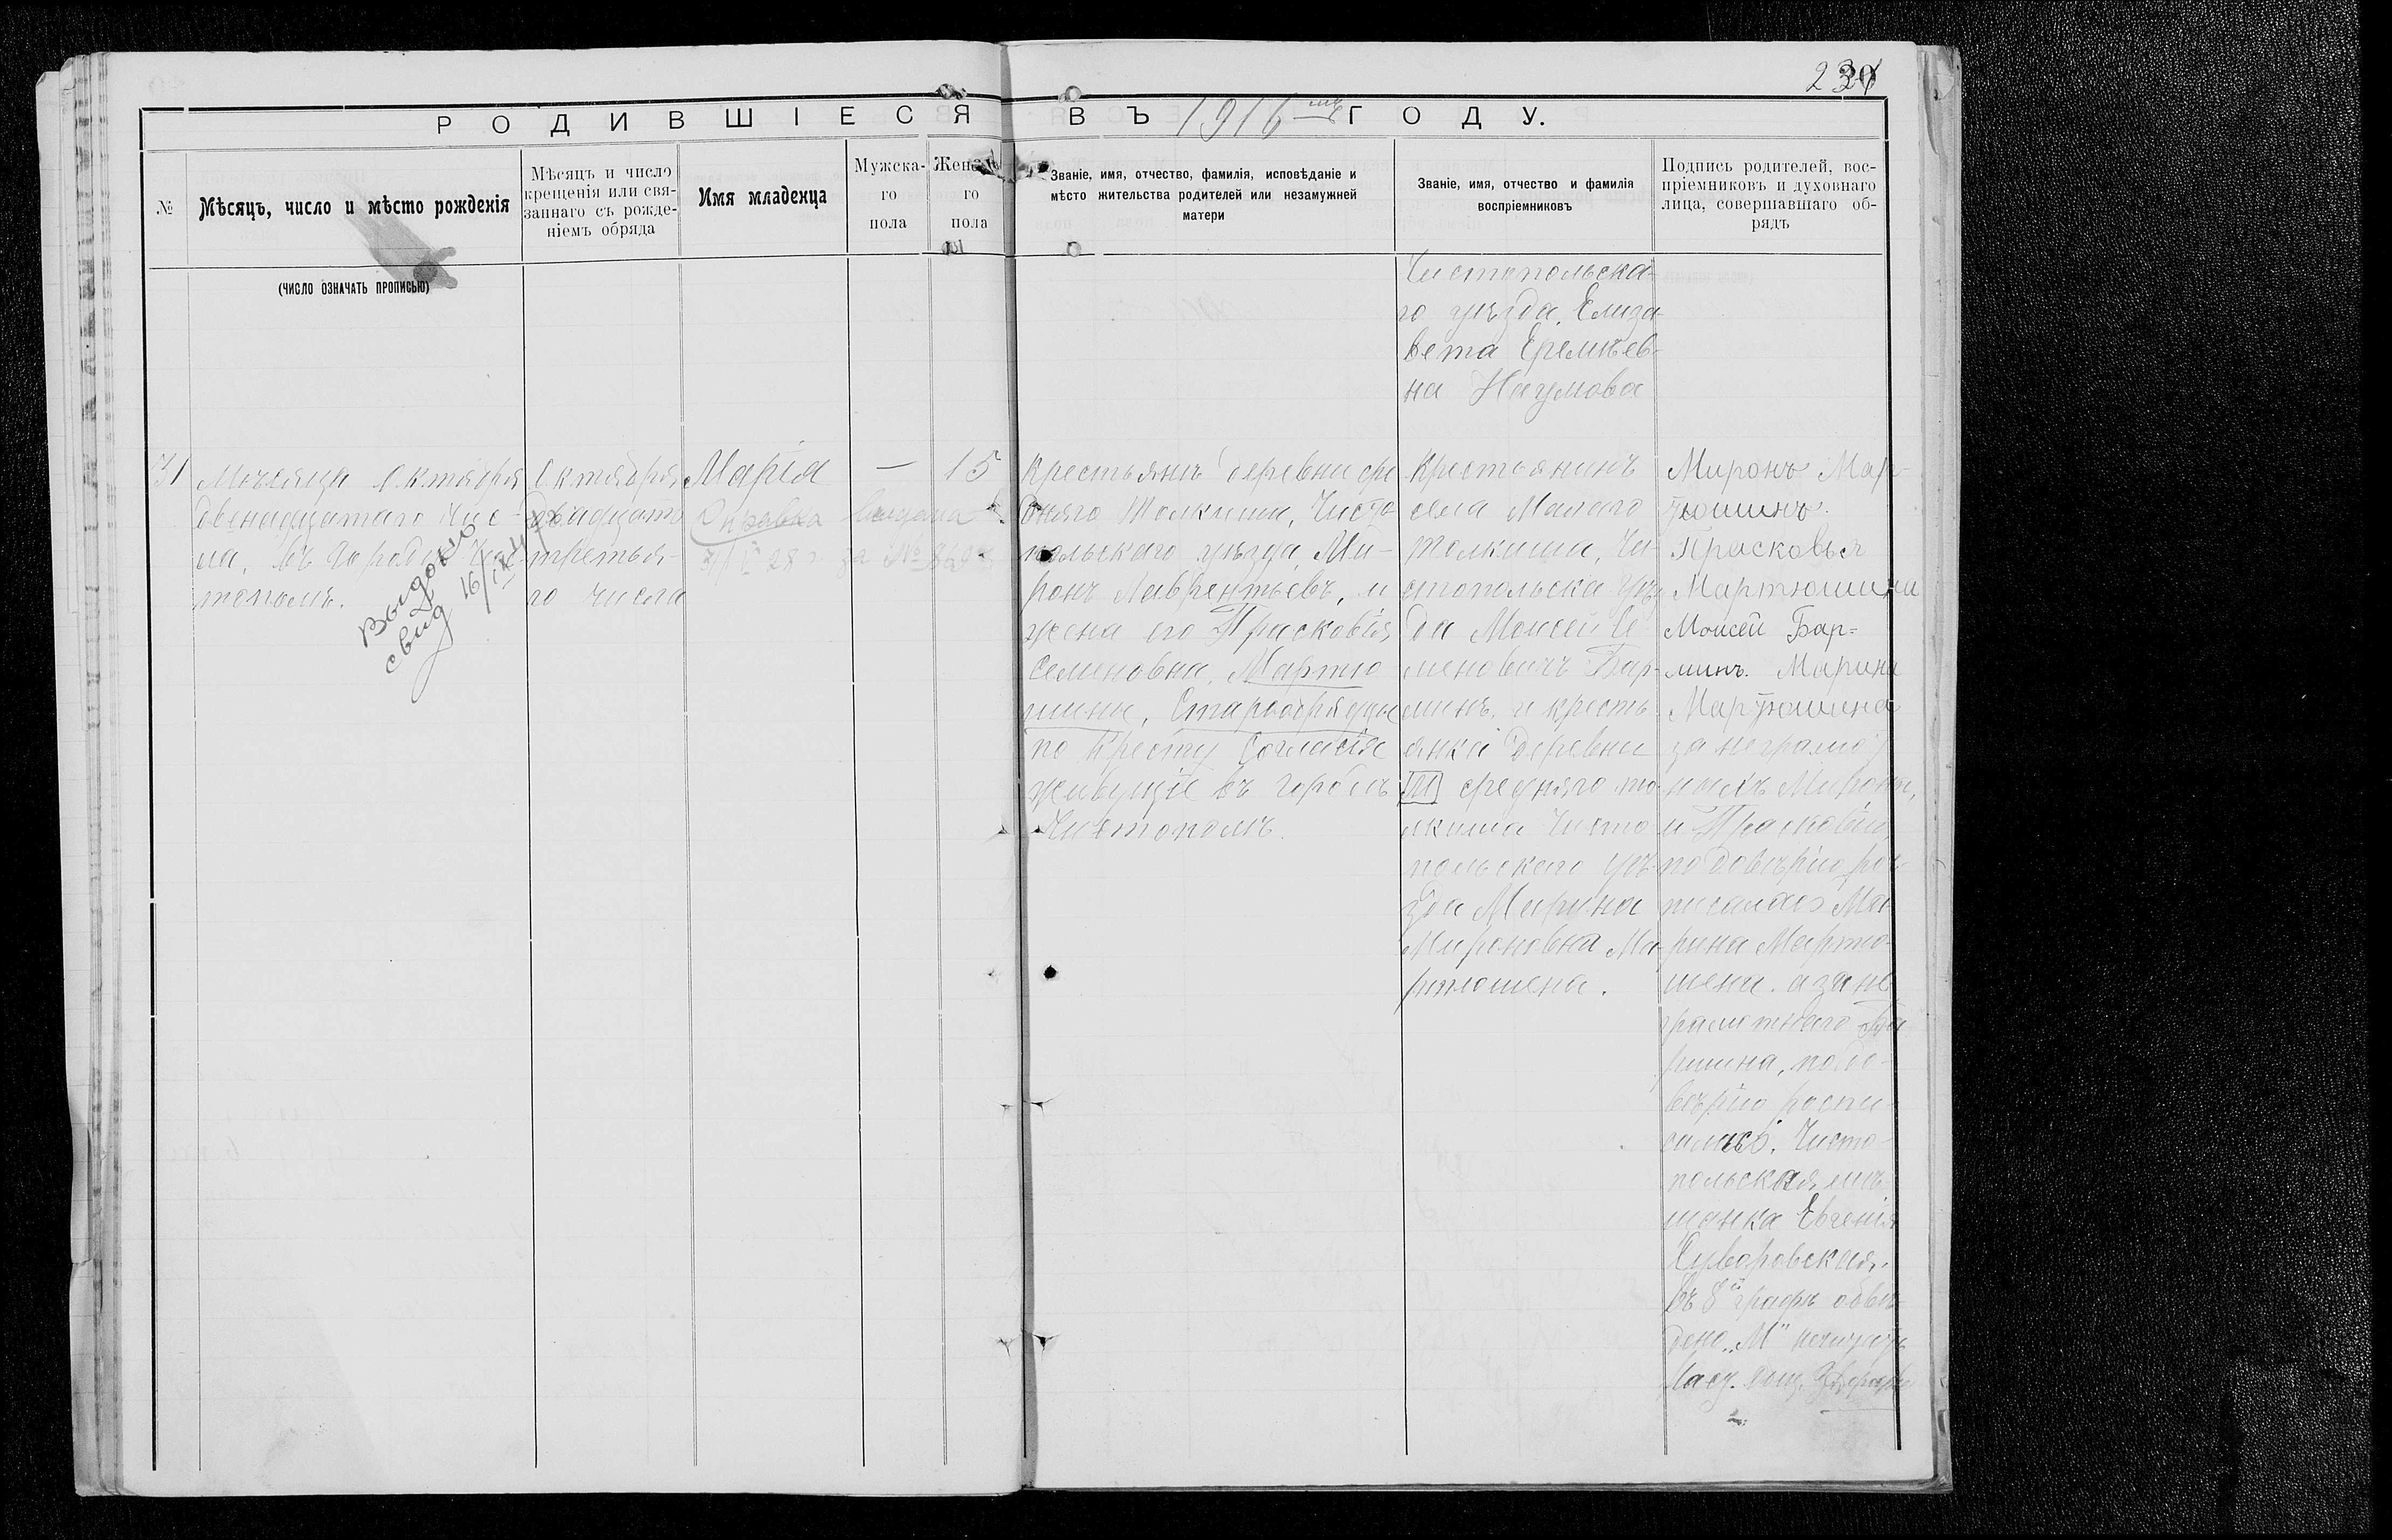 РОДИВШІЕСЯ ВЪ 1916 мъ ГОДУ.
№
Мѣсяцъ, число и мѣсто рожденія
(число означать прописью)
Мѣсяцъ и число
крещенія или свя-
заннаго съ рожде-
ніемъ обряда
Имя младенца
Мужска-
го
пола
Женска-
го
пола
Званіе, имя, отчество, фамилія, исповѣданіе и
мѣсто жительства родителей или незамужней
матери
Званіе, имя, отчество и фамилія
воспріемниковъ
Подпись родителей, вос-
пріемниковъ и духовнаго
лица, совершавшаго об-
рядъ
Чистопольска-
го уѣзда, Елиза-
вета Еремѣев-
на Наумова
31
Мѣсяца Октября
двенадцатаго чис-
ла, въ городѣ Чис-
тополѣ.
Выдано
свид 16/IX
Октября
двадцать
третья-
го числа
Марія
Справка выдана
28 г. за №
—
15
Крестьянъ деревни сре
дняго Толкиша, Чисто
польскаго уѣзда, Ми-
ронъ Лаврентьевъ, и
жена его Прасковія
Семеновна, Мартю
шины, Старообрядцы
по Кресту Согласія
живущіе въ городѣ
Чистополѣ.
Крестьянинъ
села Малаго
Толкиша, Чи-
стопольска уѣз
да Моисей Се
меновичъ Бар-
минъ, и кресть
янка деревни
М средняго то
лкиша Чисто
польскаго уѣ-
зда Марина
Мироновна Ма-
ртюшена.
Миронъ Мар-
тюшинъ.
Прасковья
Мартюшина
Моисей Бар=
минъ. Марина
Мартюшина
за неграмот
ныхъ Мирона,
и Прасковію,
по довѣрію рос-
писалась Ма-
рина Мартю-
шена. а за не
грамотнаго Ба
рмина, по до-
вѣрію роспи-
салась. Чисто-
польская мѣ-
щанка Евгенія
Суворовская.
Въ 8й графѣ обве
дено „М" нечитать